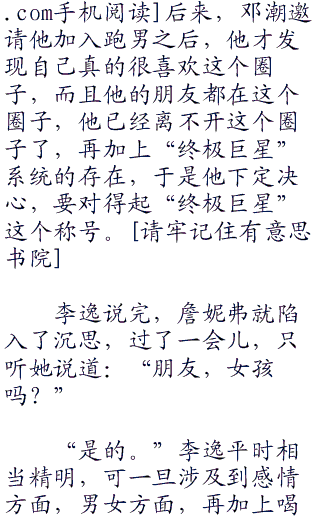 .com手机阅读]后来，邓潮邀
请他加入跑男之后，他才发
现自己真的很喜欢这个圈
子，而且他的朋友都在这个
圈子，他已经离不开这个圈
子了，再加上“终极巨星”
系统的存在，于是他下定决
心，要对得起“终极巨星”
这个称号。[请牢记住有意思
书院]
李逸说完，詹妮弗就陷
入了沉思，过了一会儿，只
听她说道：“朋友，女孩
吗？”
“是的。”李逸平时相
当精明，可一旦涉及到感情
方面，男女方面，再加上喝